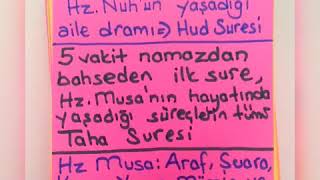 Hz. Nuh'un yaşadığı
aile dramı⇒ Hud Suresi
5 vakit namazdan
bahseden ilk sure,
Hz. Musa'nın hayatında
yaşadığı süreçlerin tümü
Taha Suresi
Hz Musa: Araf, Şuara,